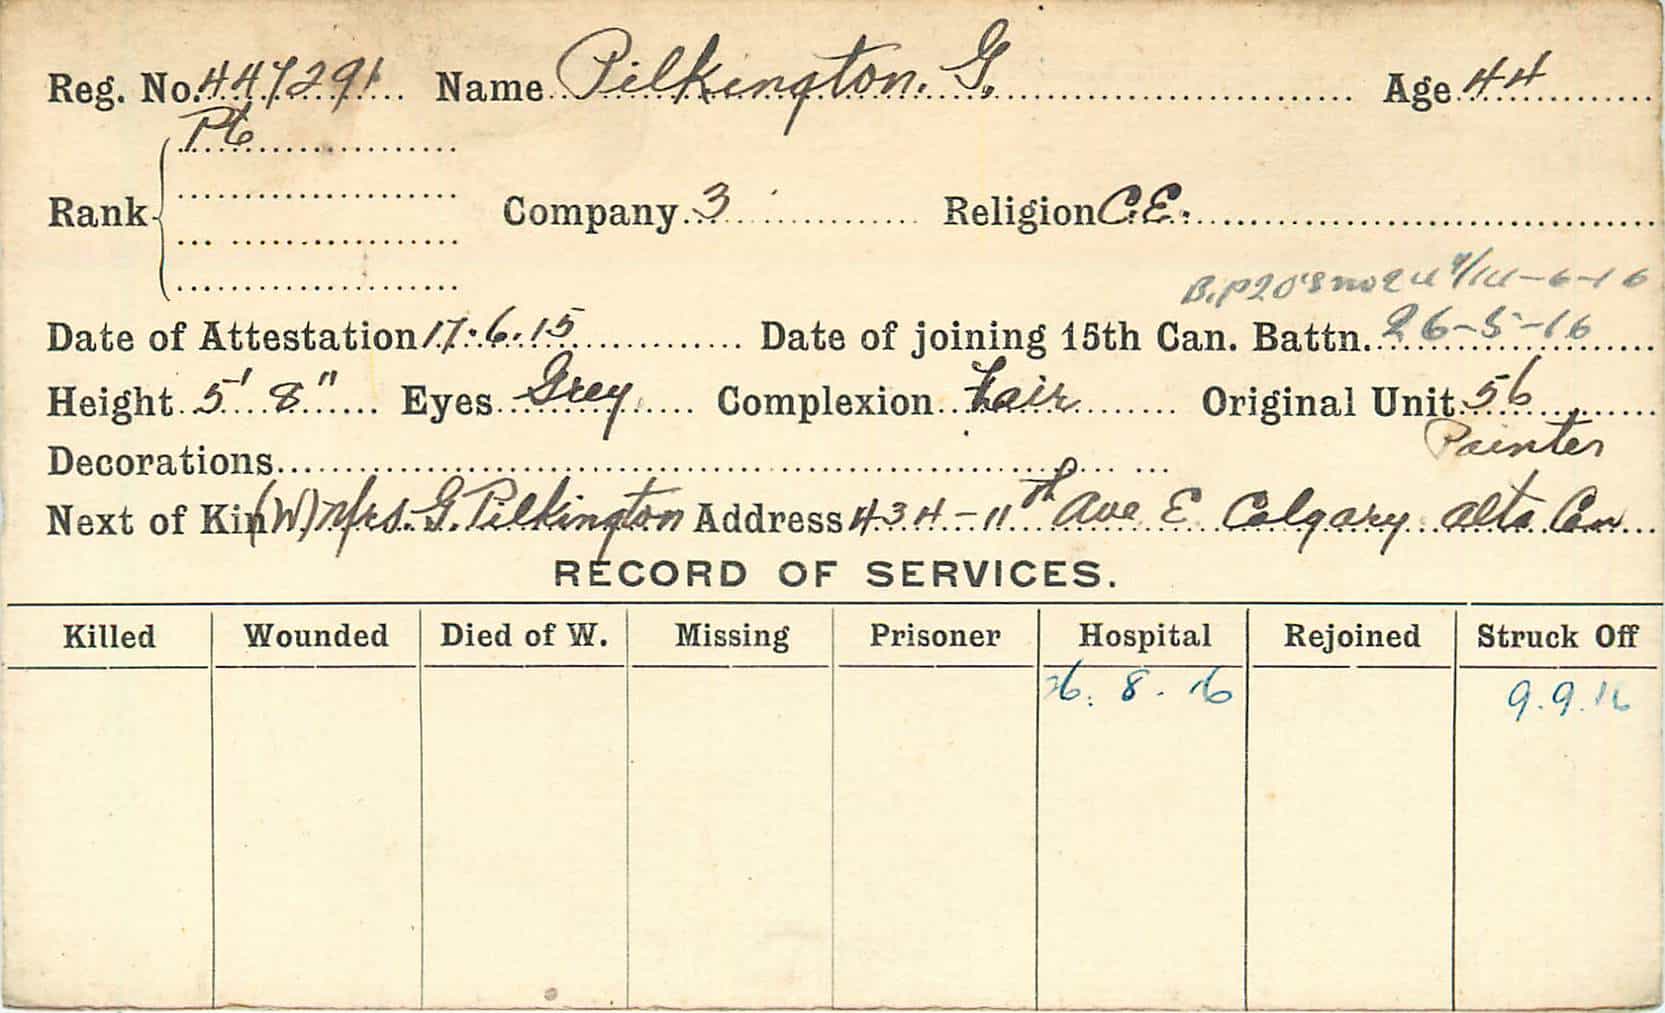 Reg. No. 447291 Name Pilkington. G. Age 44
Pt
Rank Company 3 Religion C.E.
14-6-16
Date of Attestation 17.6.15 Date of joining 15th Can. Battn. 26-5-16
Height 5' 8" Eyes Grey Complexion Fair Original Unit 56
Painter
Decorations
Next of Kin (W) Mrs. G. Pilkington Address 434-11th Ave E Calgary alta Can
RECORD OF SERVICES.
Killed Wounded Died of W. Missing Prisoner Hospital Rejoined Struck Off
26. 8. 16 9.9.16